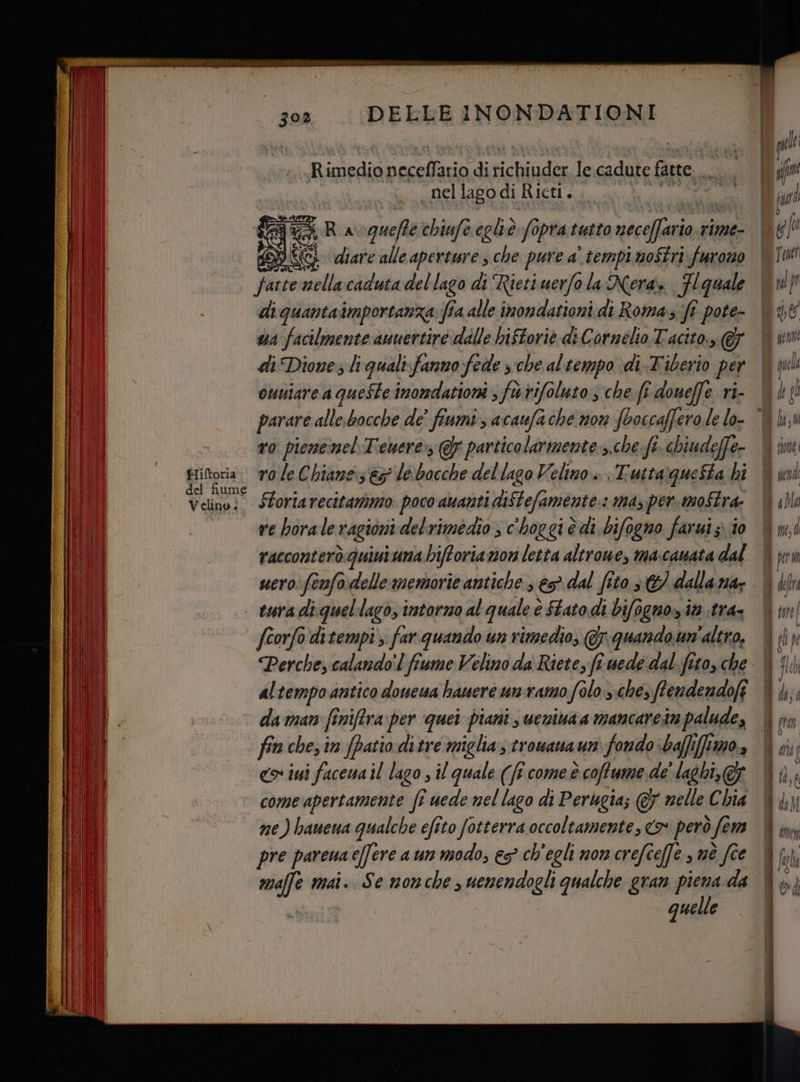 302 DELLE INONDATIONI
Rimedio neceſſario di richiuder le cadute fatte
nel lago di Rieti.
Ra queſte chiuſe egli è ſopra tutto neceſſario rime-
diare alle aperture, che pure a' tempi noſtri furono
fatte nella caduta del lago di Rieti uerſo la Nera. Il quale
di quanta importanza ſia alle inondationi di Roma, ſi pote-
ua facilmente auuertire dalle hiſtorie di Cornelio Tacito, &
di Dione, li quali fanno fede, che al tempo di Tiberio per
ouuiare a queſte inondationi, fù riſoluto, che ſi doueſſe ri-
parare alle bocche de' fiumi, acauſa che non ſboccaſſero le lo-
ro piene nel Teuere, & particolarmente, che ſi chiudeſſe-
Hiſtoria
del fiume
Velino.
ro le Chiane, & le bocche del lago Velino. Tutta queſta hi
ſtoria recitammo poco auanti diſteſamente: ma, per moſtra-
re hora le ragioni del rimedio, c'hoggi è di biſogno farui; io
racconterò quiui una hiſtoria non letta altroue, ma cauata dal
uero ſenſo delle memorie antiche, & dal ſito, & dalla na-
tura di quel lago, intorno al quale è ſtato di biſogno, in tra-
ſcorſo di tempi, far quando un rimedio, & quando un'altro.
Perche, calando'l fiume Velino da Riete, ſi uede dal ſito, che
al tempo antico doueua hauere un ramo ſolo, che, ſtendendoſi
da man ſiniſtra per quei piani, ueniua a mancare in palude,
fin che, in ſpatio di tre miglia, trouaua un fondo baſſiſſimo,
& iui faceua il lago, il quale (ſi come è coſtume de' laghi, &
come apertamente ſi uede nel lago di Perugia; & nelle Chia
ne) haueua qualche eſito ſotterra occoltamente, & però ſem
pre pareua eſſere a un modo, & ch'egli non creſceſſe, nè ſce
maſſe mai. Se non che, uenendogli qualche gran piena da
quelle